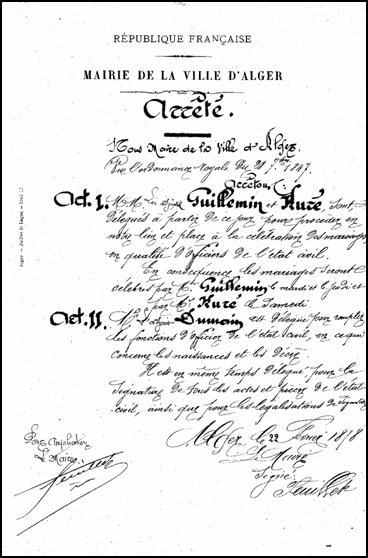 RÉPUBLIQUE FRANÇAISE
MAIRIE DE LA VILLE D'ALGER
Arrêté.
Nous Maire de la Ville d'Alger
Vu l'ordonnance royale du 28 7bre 1847.
Arrêtons:
Art. I. M.M. Guillemin et Huré, sont
délégués à partir de ce jour, pour procéder en
notre lieu et place à la célébration des mariages
en qualité d'officiers de l'état civil.
En conséquence les mariages seront
célébrés par Mr Guillemin le mardi et le jeudi et
par Mr Huré le Samedi
Art. II. Mr Dumain est délégué pour remplir
les fonctions d'officier de l'état civil, en ce qui
concerne les naissances et les décès.
Il est en même temps délégué pour la
signature de tous les actes et pièces de l'état
civil, ainsi que pour les légalisations de signature
Alger, 22 février 1878
Le Maire
Signé:
Feuillet
Pour Ampliation
Le Maire,
Feuillet